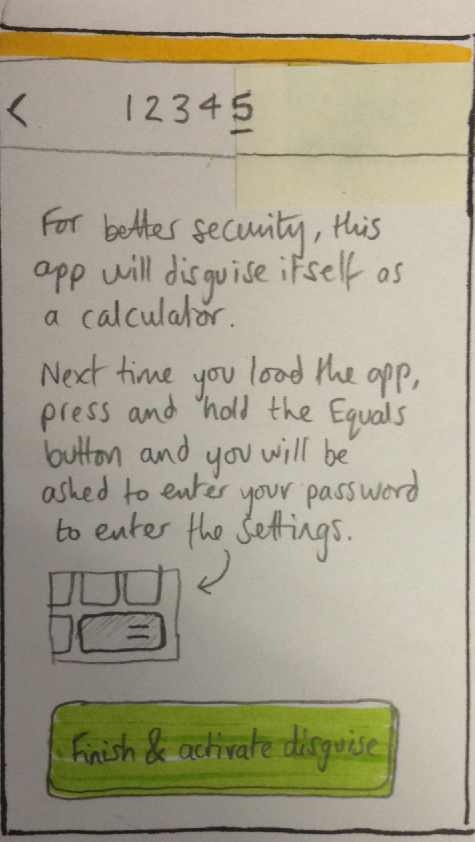 < 1 2 3 4 5
For better security, this
app will disguise itself as
a calculator.
Next time you load the app,
press and hold the Equals
button and you will be
asked to enter your password
to enter the settings.
=
Finish & activate disguise